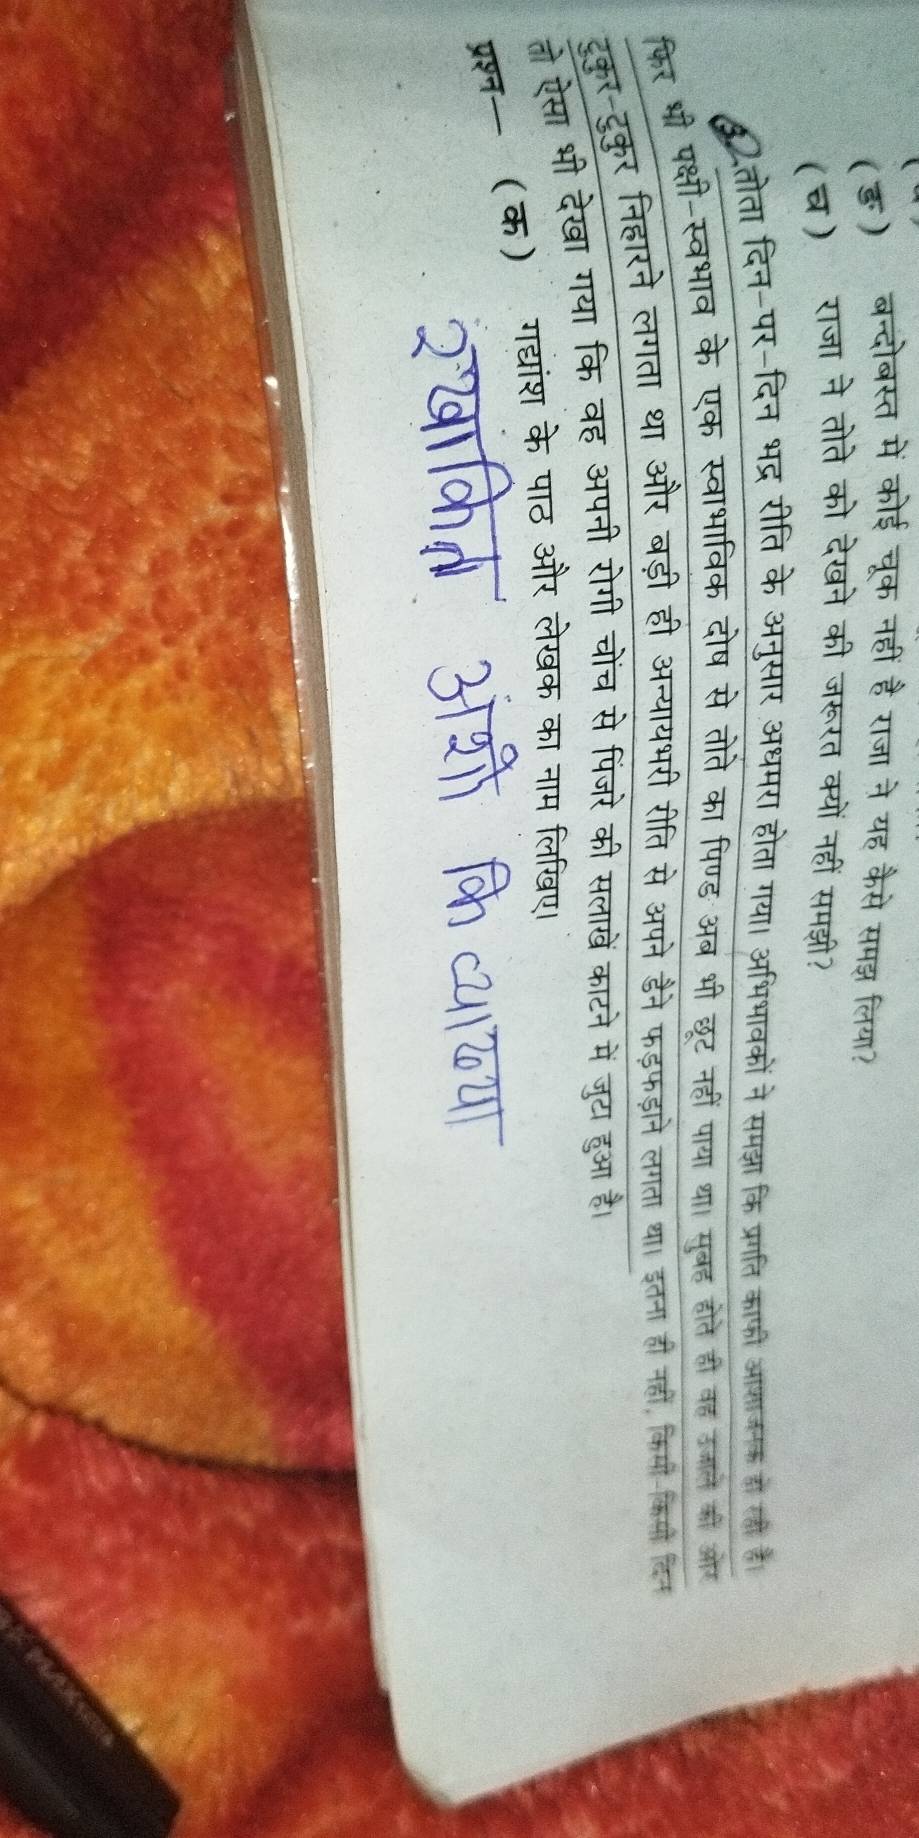 (ङ) बन्दोबस्त में कोई चूक नहीं है राजा ने यह कैसे समझ लिया?
(च) राजा ने तोते को देखने की जरूरत क्यों नहीं समझी?
तोता दिन-पर-दिन भद्र रीति के अनुसार अधमरा होता गया। अभिभावकों ने समझा कि प्रगति काफी आशाजनक हो रही है।
फिर भी पक्षी-स्वभाव के एक स्वाभाविक दोष से तोते का पिण्ड अब भी छूट नहीं पाया था। सुबह होते ही वह उजाले की ओर
टुकुर-टुकुर निहारने लगता था और बड़ी ही अन्यायभरी रीति से अपने डैने फड़फड़ाने लगता था। इतना ही नहीं, किसी-किसी दिन
तो ऐसा भी देखा गया कि वह अपनी रोगी चोंच से पिंजरे की सलाखें काटने में जुटा हुआ है।
प्रश्न— (क) गद्यांश के पाठ और लेखक का नाम लिखिए।
रेखांकित अंशो कि व्याख्या